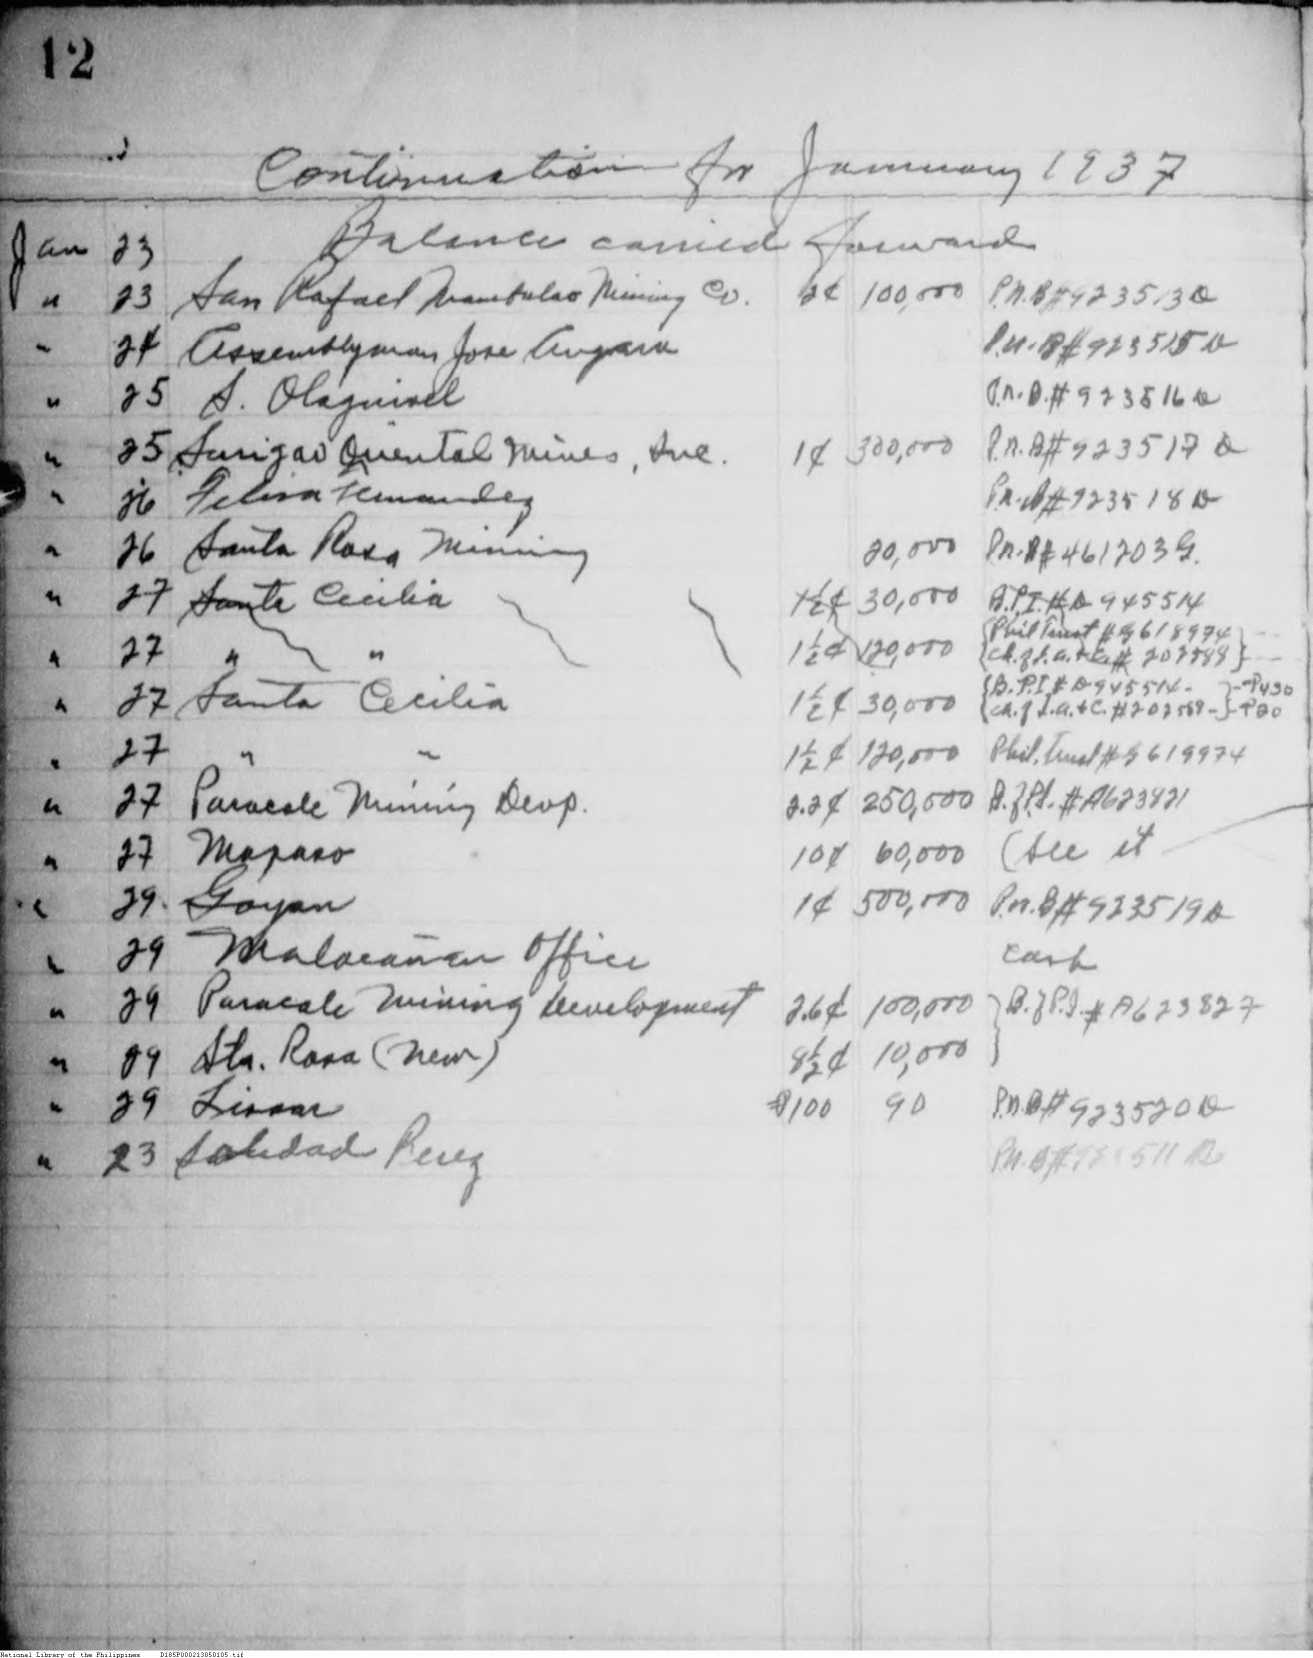 12
Continuation for January 1937
Jan 23 Balance carried forward
" 23 San Rafael Mambulao Mining Co. 2¢ 100,000 P.N.B# 923513 D
" 24 Assemblyman Jose Angara P.N.B# 923515 D
" 25 S. Olaguivel P.N.B.# 923516 D
" 25 Surigao Oriental Mines, Inc. 1¢ 300,000 P.N.B# 923517 D
" 26 Felisa Fernandez P.N.B# 923518 D
" 26 Santa Rosa Mining 20,000 P.N.B# 461203 G.
" 27 Santa Cecilia 1½¢ 30,000 B.P.I.# D 945514
" 27 " " 1½¢ 120,000 Phil Trust # G 618974
Ch. of I.a.&C.# 202588
" 27 Santa Cecilia 1½¢ 30,000 B.P.I # D945514- -₱430
Ch. of I.a.&C.#202589- -₱20
" 27 " " 1½¢ 120,000 Phil. Trust # G 619974
" 27 Paracale Mining Devp. 2.2¢ 250,000 B. of P.I. # A623821
" 27 Mapaso 10¢ 60,000 (See it
" 29 Goyan 1¢ 500,000 P.N.B# 923519 D
" 29 Malacañan Office cash
" 29 Paracale Mining Development 2.6¢ 100,000 B. of P.I. # A623827
" 29 Sta. Rosa (New) 8½¢ 10,000
" 29 ₱100 90 P.N.B# 923520 D
" 23 Soledad Perez P.N.B# 511 D
National Library of the Philippines D185P000213850105.tif